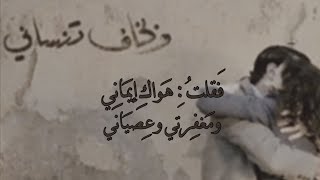 وبخاف تنساني
فَقلتُ : هَواكِ إيمَانِي
ومَغفِرتي وعِصيَاني